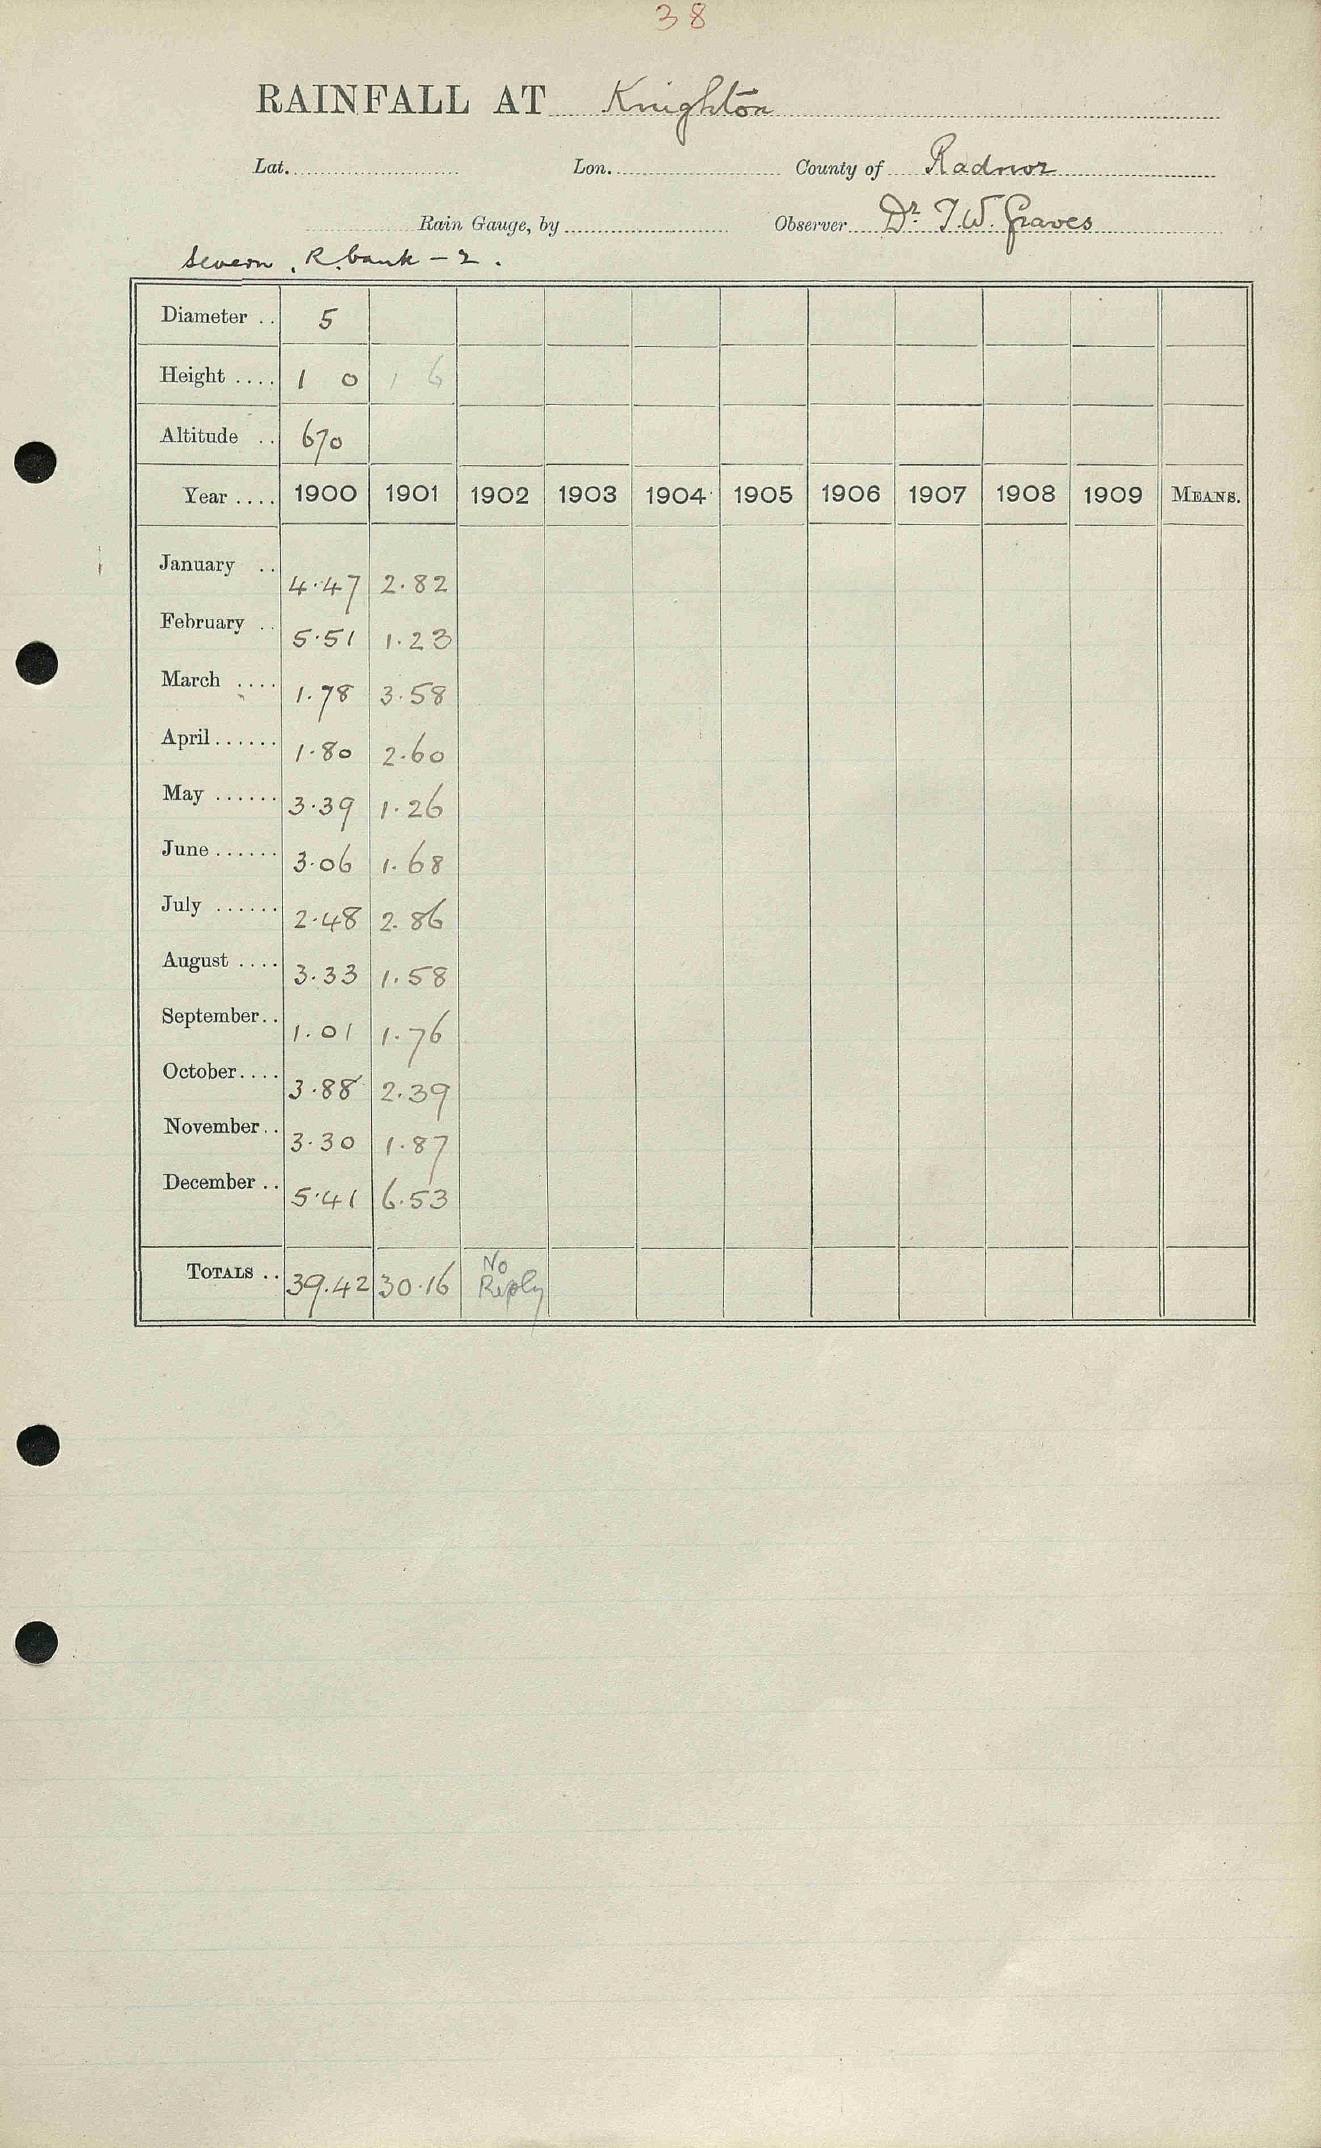 38
RAINFALL AT Knighton
Lat. Lon. County of Radnor
Rain Gauge, by Observer Dr. T.W. Graves
Severn, R. bank - 2.
Diameter .. 5
Height .... 1 0 1 6
Altitude .. 670
Year .... 1900 1901 1902 1903 1904 1905 1906 1907 1908 1909 MEANS.
January .. 4.47 2.82
February .. 5.51 1.23
March .... 1.78 3.58
April...... 1.80 2.60
May ...... 3.39 1.26
June...... 3.06 1.68
July ...... 2.48 2.86
August .... 3.33 1.58
September.. 1.01 1.76
October.... 3.88 2.39
November.. 3.30 1.87
December .. 5.41 6.53
TOTALS .. 39.42 30.16 No Reply